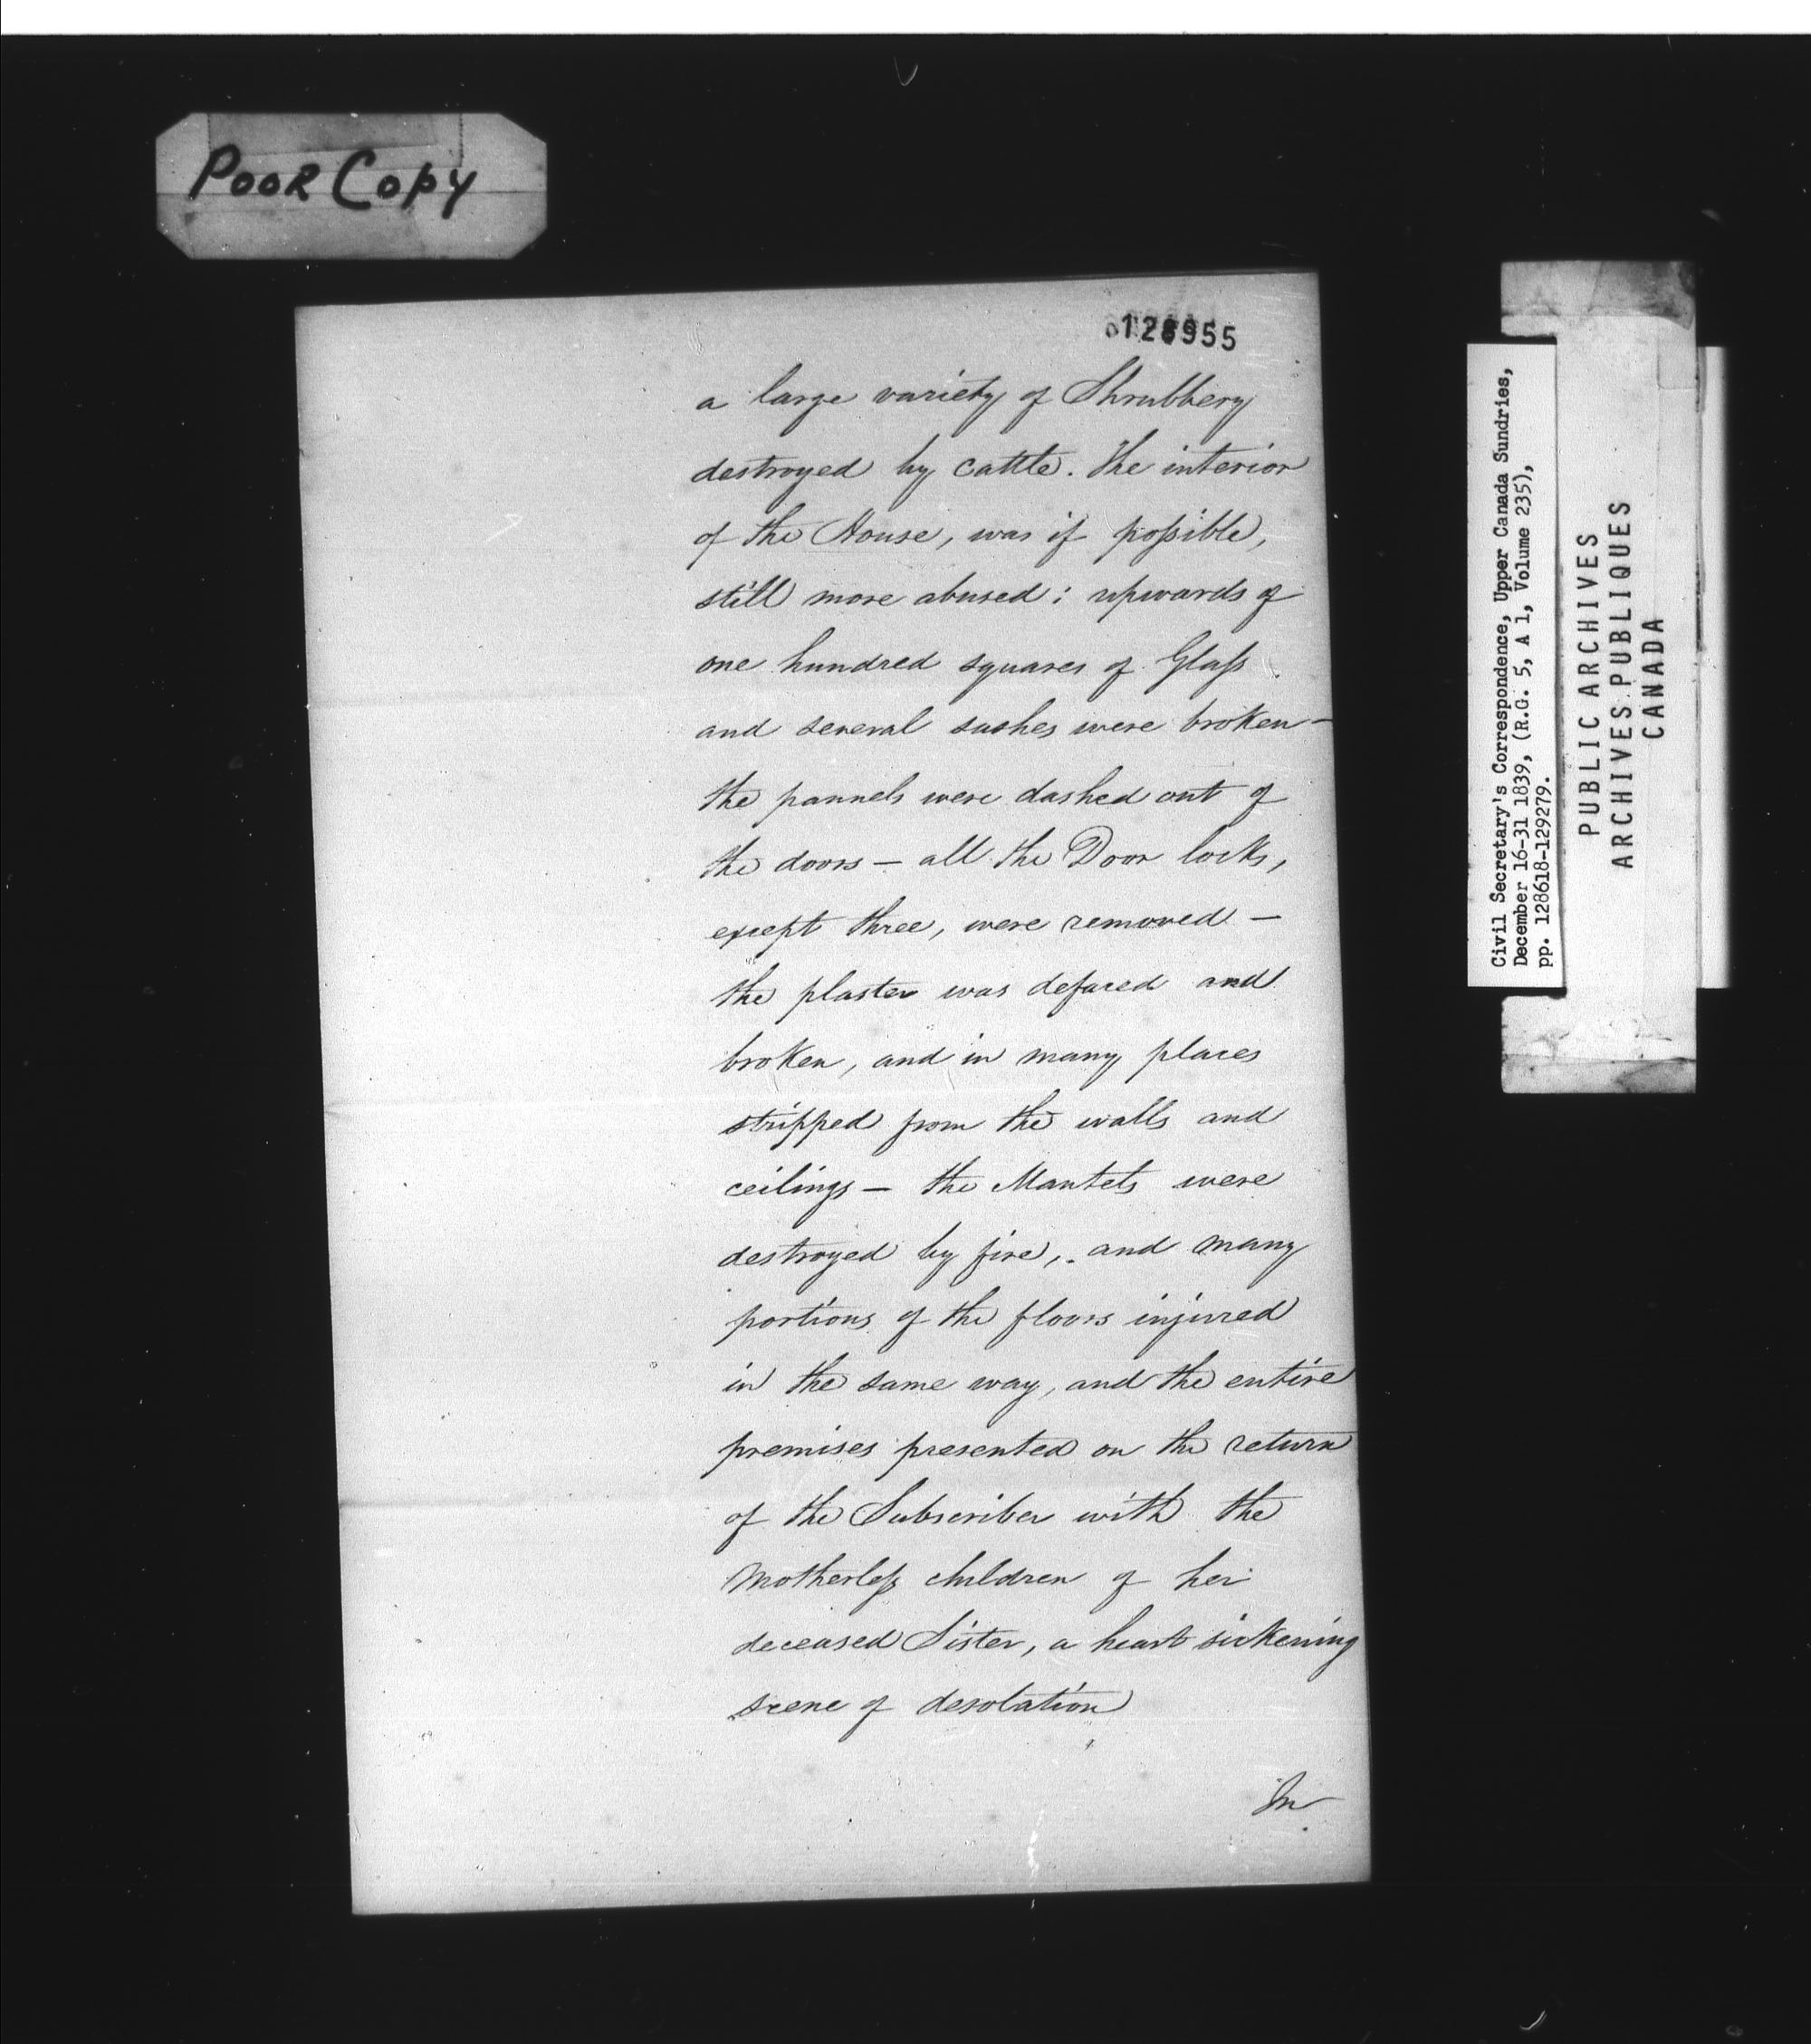 POOR COPY
128955
a large variety of Shrubbery
destroyed by cattle. The interior
of the House, was if possible,
still more abused; upwards of
one hundred squares of Glass
and several sashes were broken —
the pannels were dashed out of
the doors — all the Door locks,
except three, were removed —
the plaster was defaced and
broken, and in many places
stripped from the walls and
ceilings — the Mantels were
destroyed by fire, and many
portions of the floors injured
in the same way, and the entire
premises presented on the return
of the Subscriber with the
Motherless children of her
deceased Sister, a heart sickening
scene of desolation
In
Civil Secretary's Correspondence, Upper Canada Sundries,
December 16-31 1839, (R.G. 5, A 1, Volume 235),
pp. 128618-129279.
PUBLIC ARCHIVES
ARCHIVES PUBLIQUES
CANADA